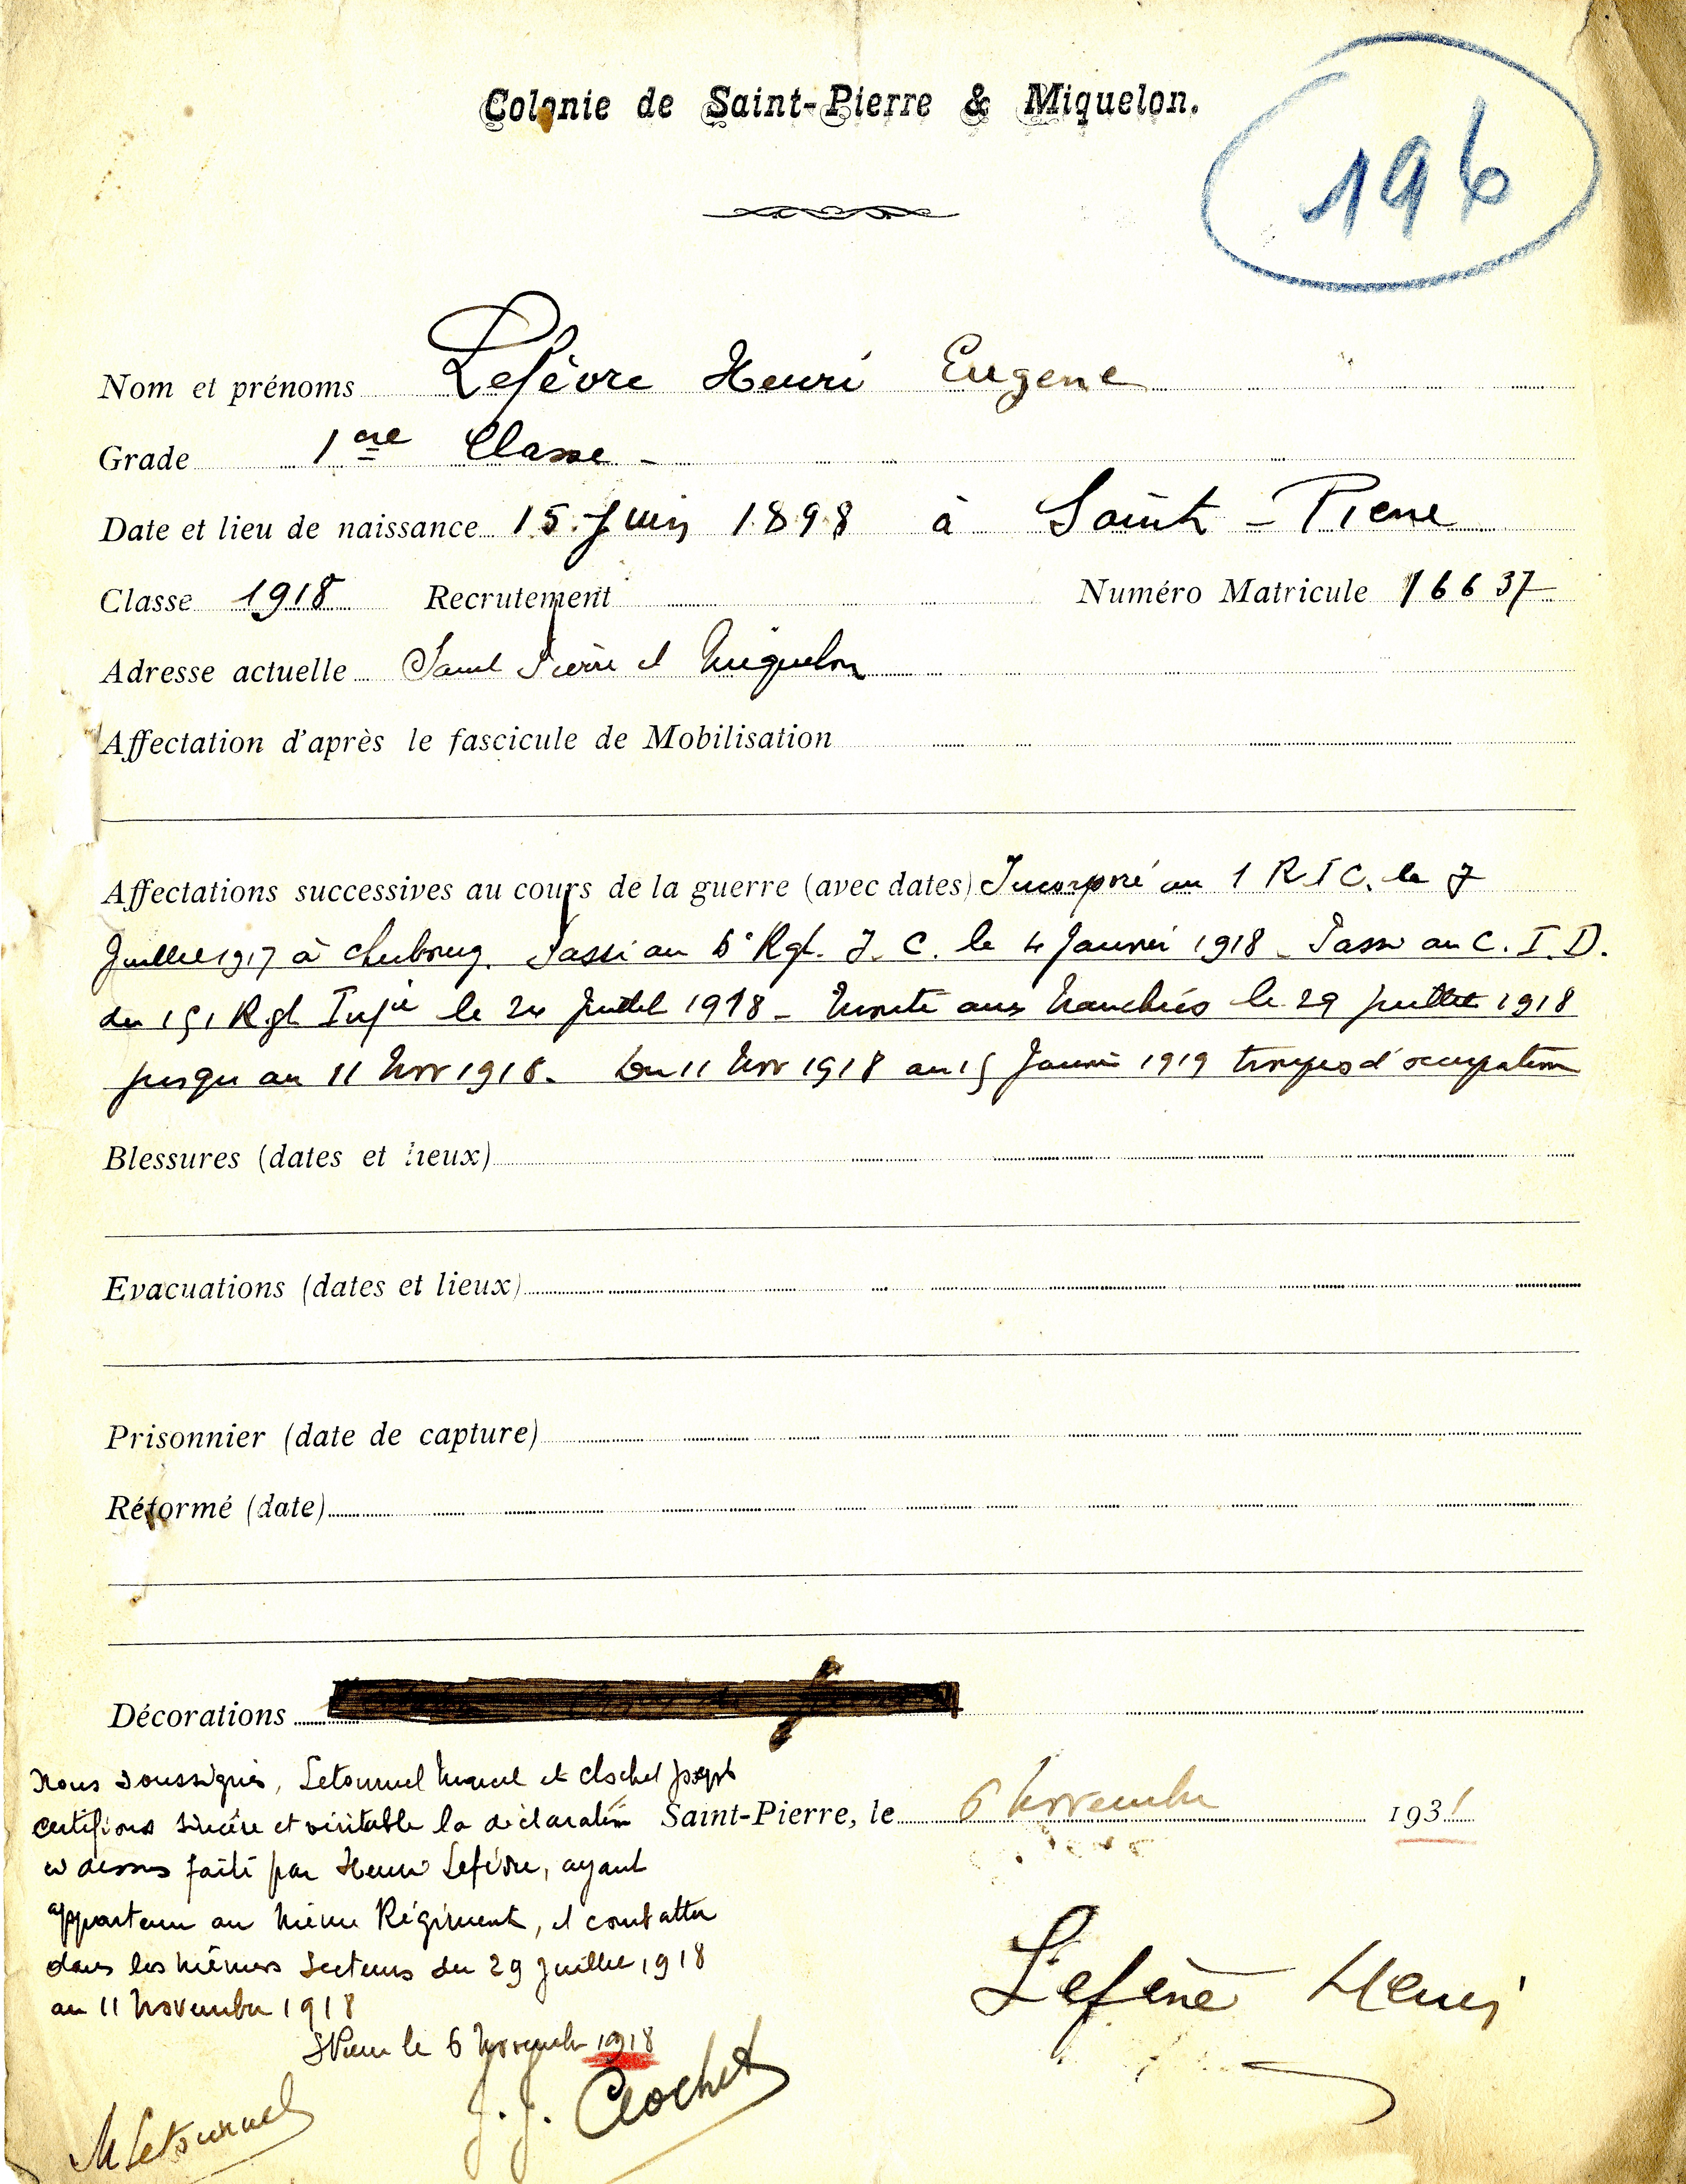 Colonie de Saint-Pierre & Miquelon.
196
Nom et prénoms Lefèvre Henri Eugene
Grade 1ere Classe -
Date et lieu de naissance 15 Juin 1898 à Saint-Pierre
Classe 1918 Recrutement Numéro Matricule 16637
Adresse actuelle Saint Pierre et Miquelon
Affectation d'après le fascicule de Mobilisation
Affectations successives au cours de la guerre (avec dates) Incorporé au 1 R I C. le 7
Juillet 1917 à Cherbourg. Passé au Rgt. I. C. le 4 Janvier 1918 - Passé au C. I. D.
du 151 Rgt Infie le 24 Juillet 1918 - Monté aux tranchées le 29 Juillet 1918
jusqu'au 11 Nov 1918. Du 11 Nov 1918 au 15 Janvier 1919 troupes d'occupation
Blessures (dates et lieux)
Evacuations (dates et lieux)
Prisonnier (date de capture)
Réformé (date)
Décorations
Nous soussignés, Letournel Marcel et Clochet Joseph
certifions sincère et véritable la déclaration
Saint-Pierre, le 6 Novembre 1931
ci dessus faite par Henri Lefèvre, ayant
appartenu au même Régiment, et combattu
dans les mêmes Secteurs du 29 Juillet 1918
au 11 Novembre 1918
Lefèvre Henri
St Pierre le 6 Novembre 1918
M Letournel
J. J. Clochet